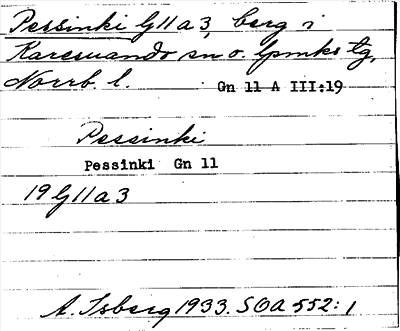 Pessinki G11a3, berg i
Karesuando sn o. lpmks tg,
Norrb. l. Gn 11 A III:19
Pessinki
Pessinki Gn 11
19 G11a3
A. Isberg 1933. SOA 552:1